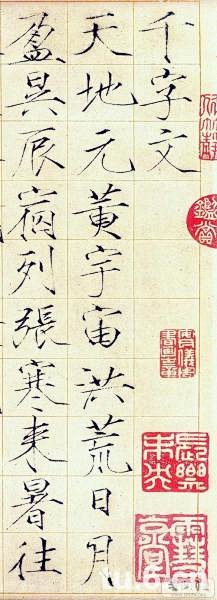 千字文
天地元黄宇宙洪荒日月
盈昃辰宿列張寒来暑往